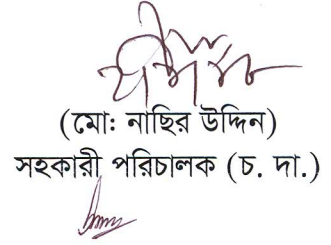 (মো: নাছির উদ্দিন)
সহকারী পরিচালক (চ. দা.)